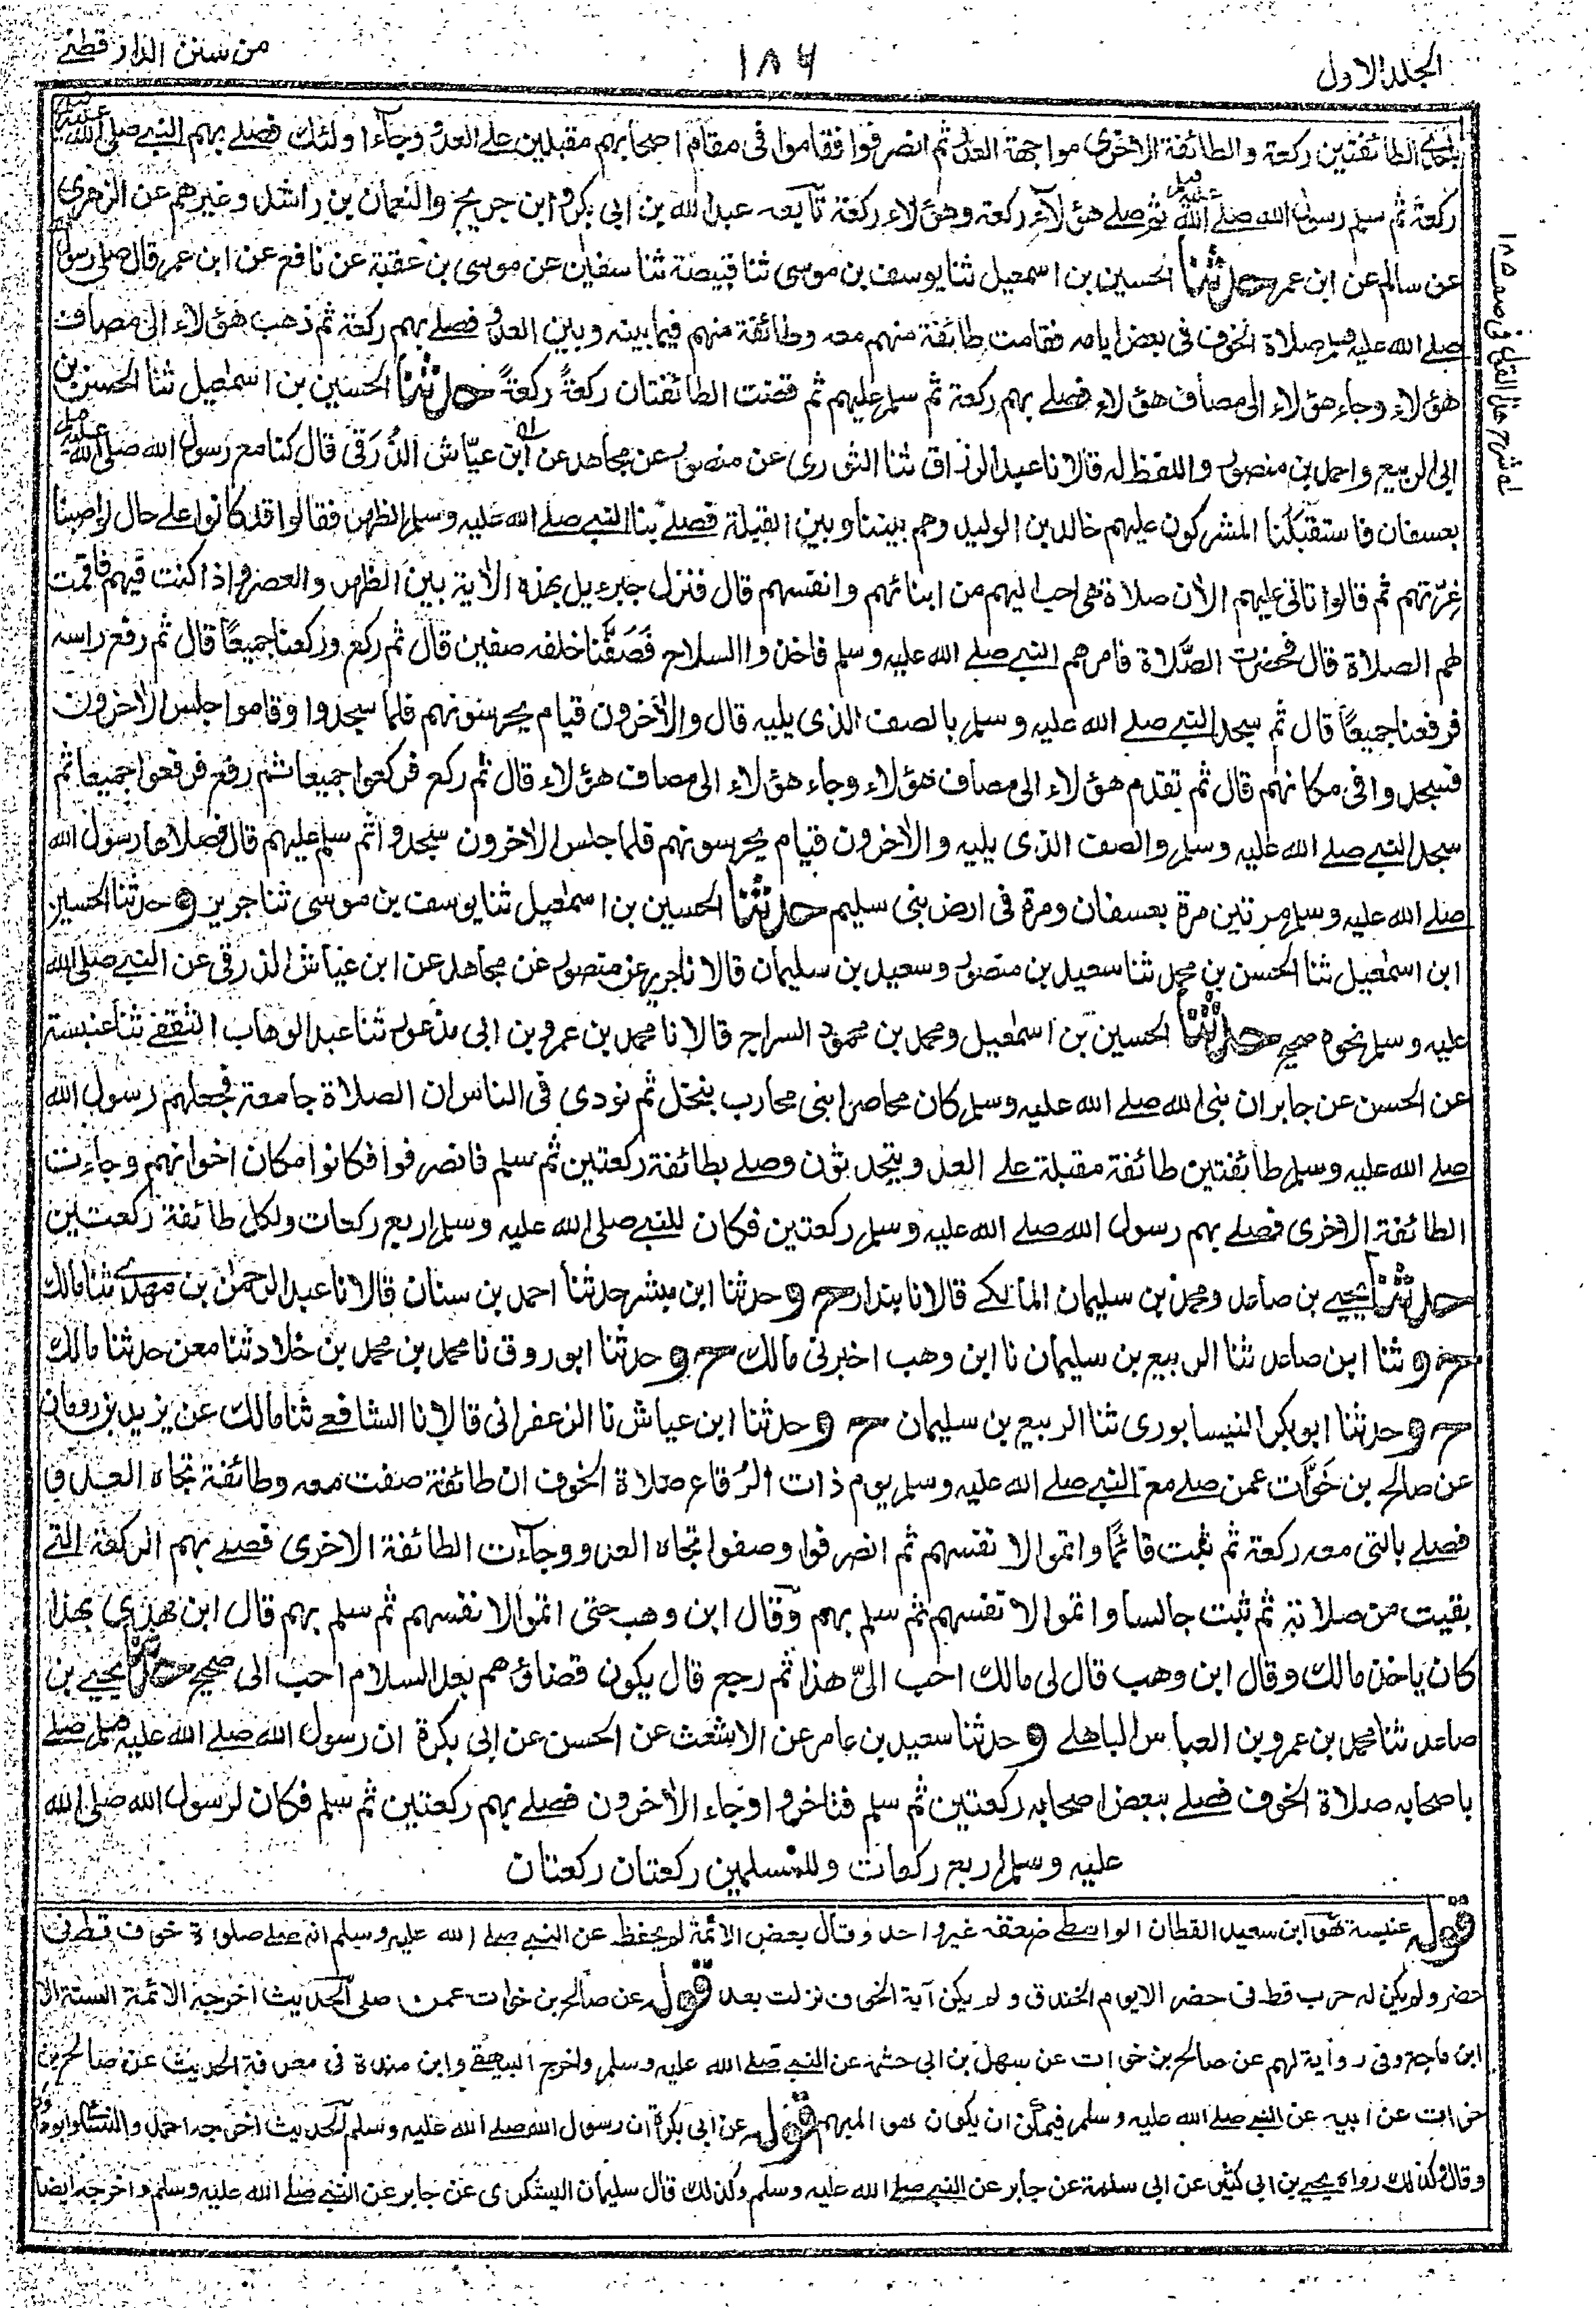 الجلد الاول
١٨٦
من سنن الدار قطني
باحدى الطائفتين ركعة والطائفة الاخرى مواجهة العدو ثم انصرفوا فقاموا فى مقام اصحابهم مقبلين على العدو وجاء اولئك فصلے بهم النبے صلى الله عليه وسلم
ركعة ثم سلم رسول الله صلے الله عليه وسلم ثم صلے هؤلاء ركعة وهؤلاء ركعة تابعه عبد الله بن ابى بكر وابن جريج والنعمان بن راشد وغيرهم عن الزهرى
عن سالم عن ابن عمر حدثنا الحسين بن اسمعيل ثنا يوسف بن موسى ثنا قبيصة ثنا سفين عن موسى بن عقبة عن نافع عن ابن عمر قال صلى رسول الله
صلے الله عليه وسلم صلاة الخوف فى بعض ايامه فقامت طائفة منهم معه وطائفة منهم فيما بينه وبين العدو فصلے بهم ركعة ثم ذهب هؤلاء الى مصاف
هؤلاء وجاء هؤلاء الى مصاف هؤلاء فصلے بهم ركعة ثم سلم عليهم ثم قضت الطائفتان ركعةً ركعةً حدثنا الحسين بن اسمعيل ثنا الحسن بن
ابى الربيع واحمد بن منصور واللفظ له قالا نا عبد الرزاق ثنا الثورى عن منصور عن مجاهد عن ابى عيّاش الزُّرَقى قال كنا مع رسول الله صلى الله عليه وسلم
بعسفان فاستقبَلَنا المشركون عليهم خالد بن الوليد وهم بيننا وبين القبلة فصلے بنا النبے صلے الله عليه وسلم الظهر فقالوا قد كانوا على حال لو اصبنا
غرّتهم ثم قالوا تاتى عليهم الأن صلاة هى احب اليهم من ابنائهم وانفسهم قال فنزل جبرءيل بهذه الأية بين الظهر والعصر واذا كنت فيهم فاقمت
لهم الصلاة قال فحضرت الصَّلاة فامرهم النبے صلے الله عليه وسلم فاخذوا السلاح فَصَفَّنا خلفه صفين قال ثم ركع وركعنا جميعًا قال ثم رفع راسه
فرفعنا جميعًا قال ثم سجد النبے صلے الله عليه وسلم بالصف الذى يليه قال والأخرون قيام يحرسونهم فلما سجدوا وقاموا جلس الأخرون
فسجدوا فى مكانهم قال ثم تقدم هؤلاء الى مصاف هؤلاء وجاء هؤلاء الى مصاف هؤلاء قال ثم ركع فركعوا جميعا ثم رفع فرفعوا جميعا ثم
سجد النبے صلے الله عليه وسلم والصف الذى يليه والأخرون قيام يحرسونهم فلما جلس الأخرون سجدوا ثم سلم عليهم قال فصلاها رسول الله
صلے الله عليه وسلم مرتين مرة بعسفان ومرة فى ارض بنى سليم حدثنا الحسين بن اسمعيل ثنا يوسف بن موسى ثنا جرير و حدثنا الحسين
ابن اسمعيل ثنا الحسن بن محمد ثنا سعيد بن منصور وسعيد بن سليمان قالا نا جرير عن منصور عن مجاهد عن ابن عياش الزرقى عن النبے صلى الله
عليه وسلم نحوه صحيح حدثنا الحسين بن اسمعيل ومحمد بن محمود السراج قالا نا محمد بن عمرو بن ابى مذعور ثنا عبد الوهاب الثقفے ثنا عنبسة
عن الحسن عن جابر ان نبى الله صلے الله عليه وسلم كان محاصرا بنى محارب بنخل ثم نودى فى الناس ان الصلاة جامعة فجعلهم رسول الله
صلے الله عليه وسلم طائفتين طائفة مقبلة على العدو يتحدثون وصلے بطائفة ركعتين ثم سلم فانصرفوا فكانوا مكان اخوانهم وجاءت
الطائفة الاخرى فصلے بهم رسول الله صلے الله عليه وسلم ركعتين فكان للنبے صلى الله عليه وسلم اربع ركعات ولكل طائفة ركعتين
حدثنا يحيے بن صاعد ومحمد بن سليمان المالكے قالا نا بندار ح و حدثنا ابن مبشر حدثنا احمد بن سنان قالا نا عبد الرحمٰن بن مهدے ثنا مالك
ح و ثنا ابن صاعد ثنا الربيع بن سليمان نا ابن وهب اخبرنى مالك ح و حدثنا ابو روق نا محمد بن محمد بن خلاد ثنا معن حدثنا مالك
ح و حدثنا ابو بكر النيسابورى ثنا الربيع بن سليمان ح و حدثنا ابن عياش نا الزعفرانى قالا نا الشافعے ثنا مالك عن يزيد بن رومان
عن صالح بن خَوَّات عمن صلے مع النبے صلے الله عليه وسلم يوم ذات الرقاع صلاة الخوف ان طائفة صفت معه وطائفة تجاه العدو
فصلے بالتى معه ركعة ثم ثبت قائمًا واتموا لانفسهم ثم انصرفوا وصفوا تجاه العدو وجاءت الطائفة الاخرى فصلے بهم الركعة التے
بقيت من صلاته ثم ثبت جالسا واتموا لانفسهم ثم سلم بهم وقال ابن وهب حتى اتموا لانفسهم ثم سلم بهم قال ابن مهدى بهذا
كان ياخذ مالك وقال ابن وهب قال لى مالك احب الىّ هذا ثم رجع قال يكون قضاؤهم بعد السلام احب الى صحيح حدثنا يحيے بن
صاعد ثنا محمد بن عمرو بن العباس الباهلے و حدثنا سعيد بن عامر عن الاشعث عن الحسن عن ابى بكرة ان رسول الله صلے الله عليه وسلم صلے
باصحابه صلاة الخوف فصلے ببعض اصحابه ركعتين ثم سلم فتاخروا وجاء الأخرون فصلے بهم ركعتين ثم سلم فكان لرسول الله صلى الله
عليه وسلم اربع ركعات وللمسلمين ركعتان ركعتان
قوله عنبسة هو ابن سعيد القطان الواسطے ضعفه غير واحد وقال بعض الائمة لم يحفظ عن النبے صلے الله عليه وسلم انه صلے صلوٰة خوف قط فى
حضر ولم يكن له حرب قط فى حضر الا يوم الخندق ولم يكن آية الخوف نزلت بعد قوله عن صالح بن خوات عمن صلى الحديث اخرجه الائمة الستة الا
ابن ماجة وفى رواية لهم عن صالح بن خوات عن سهل بن ابى حثمة عن النبے صلے الله عليه وسلم واخرج البيهقے وابن مندة فى معرفة الحديث عن صالح بن
خوات عن ابيه عن النبے صلے الله عليه وسلم فيمكن ان يكون هو المبهم قوله عن ابى بكرة ان رسول الله صلے الله عليه وسلم الحديث اخرجه احمد والنسائے وابوداود
وقال كذلك رواه يحيے بن ابى كثير عن ابى سلمة عن جابر عن النبے صلے الله عليه وسلم وكذلك قال سليمان اليشكرى عن جابر عن النبے صلے الله عليه وسلم واخرجه ايضا